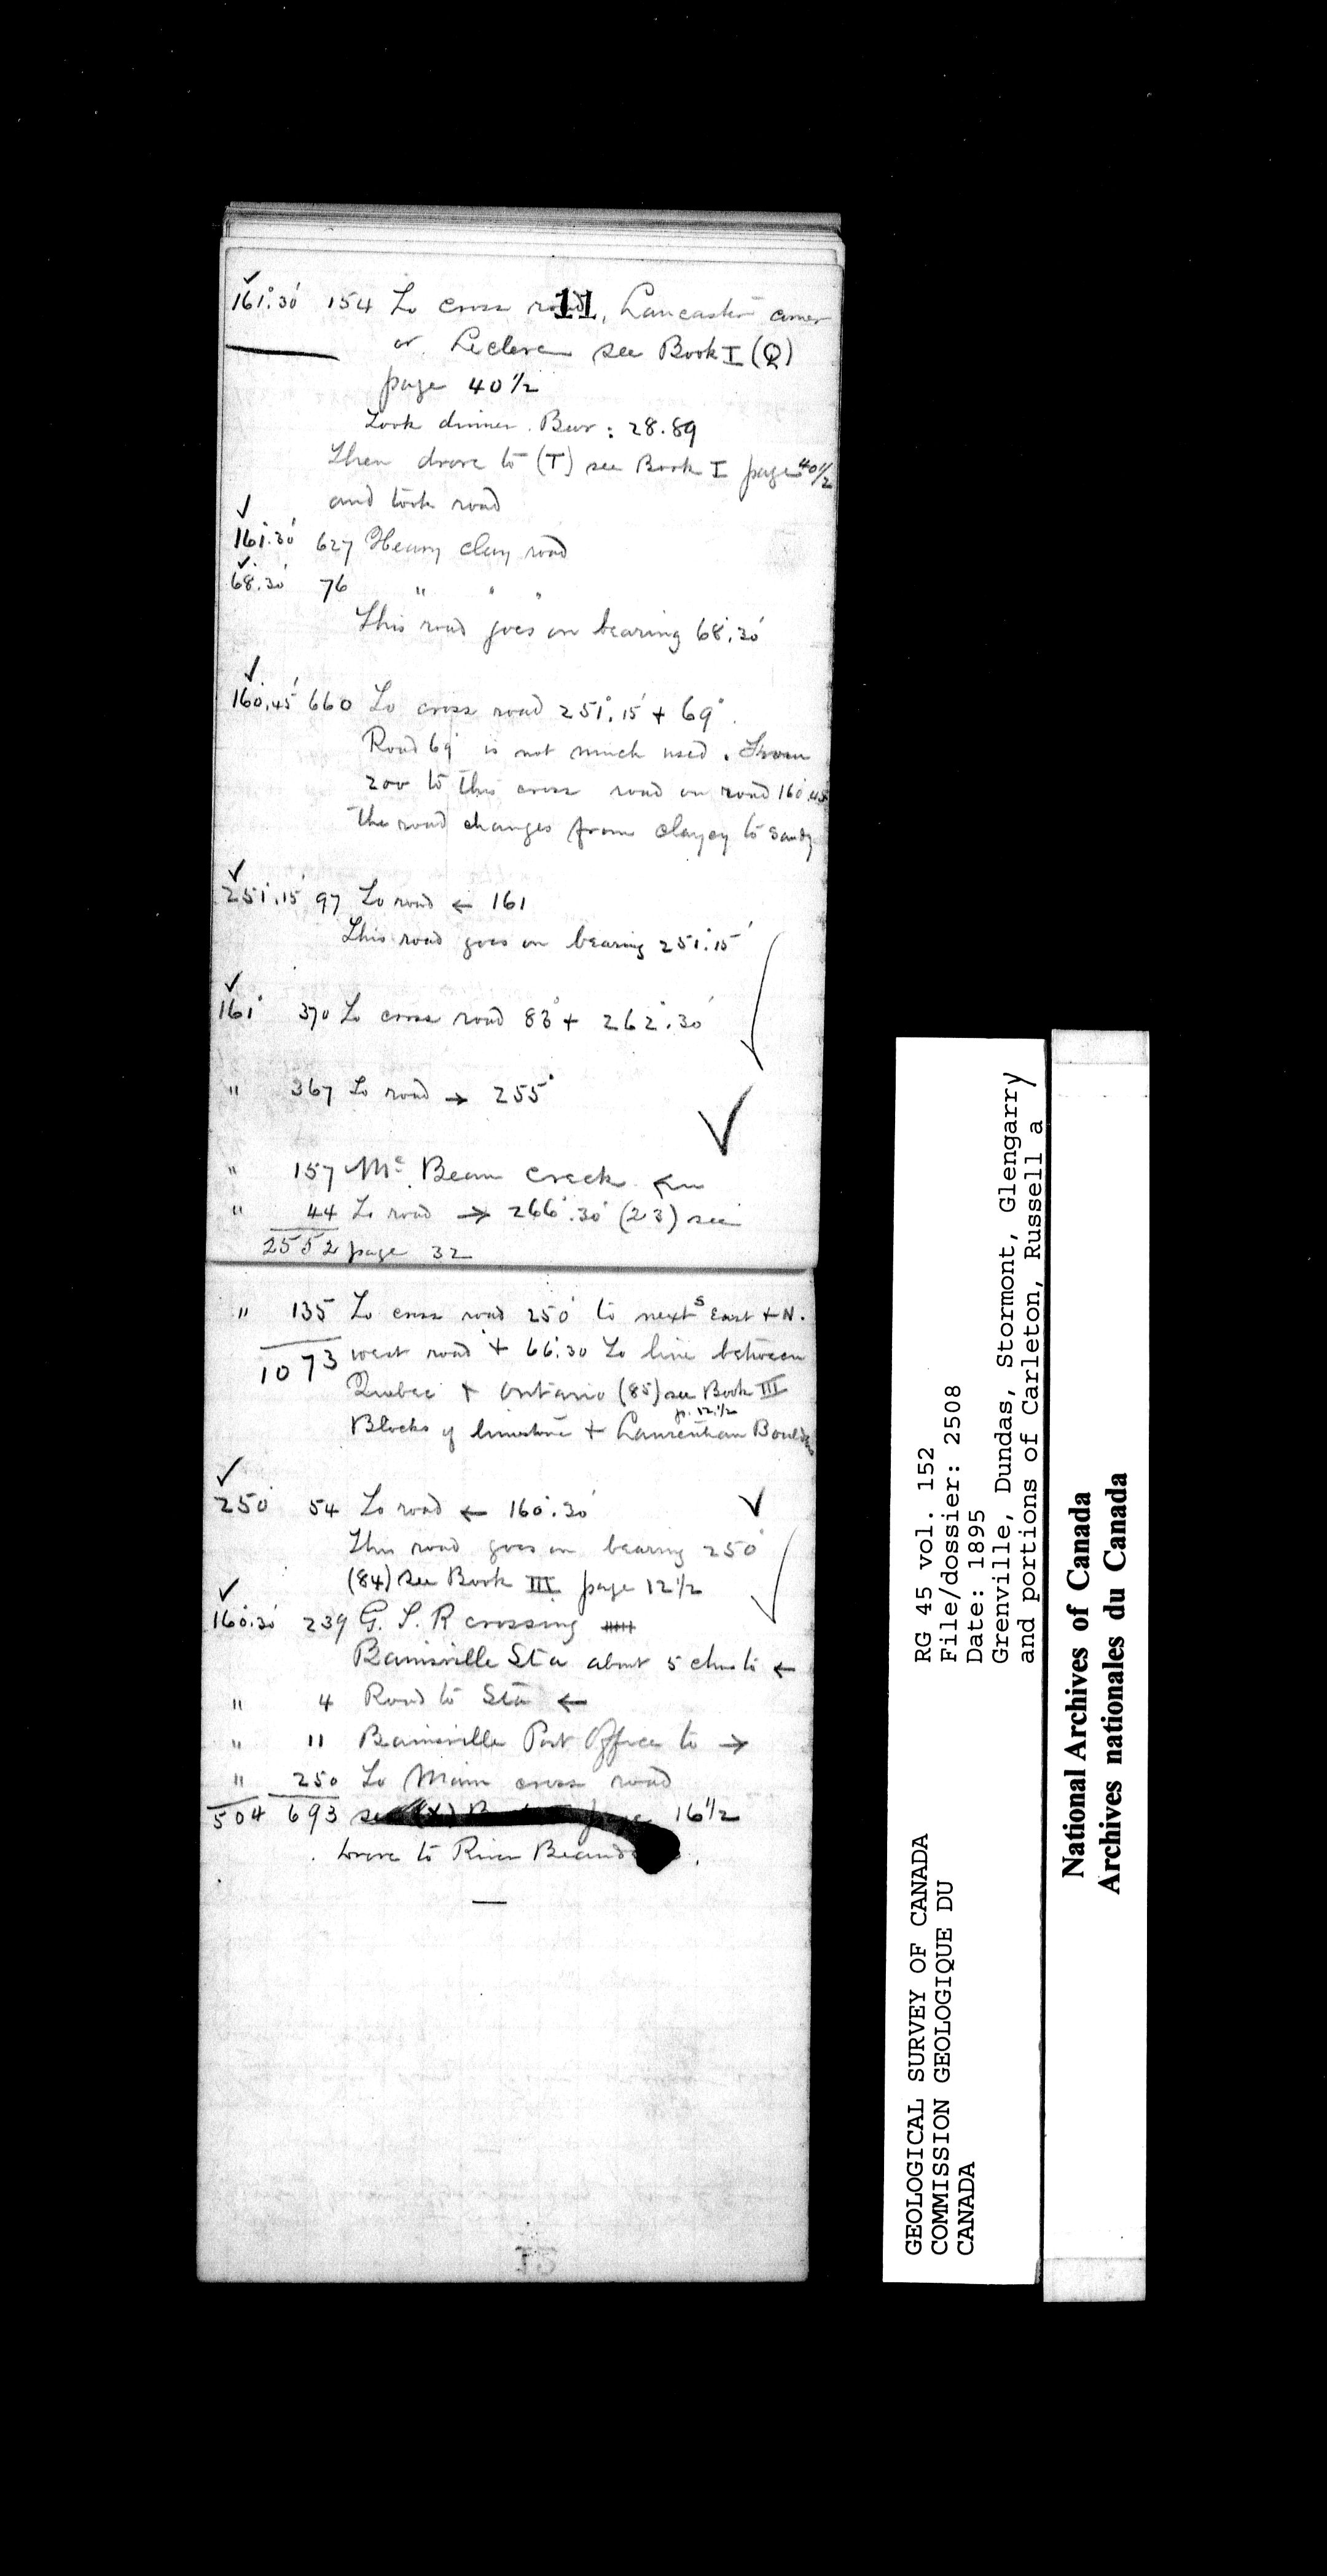 11
161°.30' 154 To cross road, Lancaster corner
or Leclerc see Book I (Q)
page 40 1/2
Took dinner. Bar: 28.89
Then drove to (T) see Book I page 40 1/2
and took road
161°.30' 627 Heavy clay road
68°.30' 76 " " "
This road goes on bearing 68°.30'
160°.45' 660 To cross road 251°.15' + 69°.
Road 69° is not much used. From
200 to this cross road on road 160°.45'
the road changes from clayey to sandy
251°.15' 97 To road ← 161
This road goes on bearing 251°.15'
161° 370 To cross road 83° + 262°.30'
" 367 To road → 255°
" 157 Mc. Bean Creek ←
" 44 To road → 266°.30' (23) see
2552 page 32
" 135 To cross road 250° to next S East + N.
1073 west road + 66°.30 To line between
Quebec + Ontario (85) see Book III
p. 12 1/2
Blocks of limestone + Laurentian Boulders
250° 54 To road ← 160°.30'
This road goes on bearing 250°
(84) see Book III page 12 1/2
160°.30' 239 G. T. R crossing
Bainsville Sta about 5 chns to ←
" 4 Road to Sta ←
" 11 Bainsville Post Office to →
" 250 To Main cross road
504 693 see (X) page 16 1/2
Drove to River
GEOLOGICAL SURVEY OF CANADA
COMMISSION GEOLOGIQUE DU
CANADA
RG 45 vol. 152
File/dossier: 2508
Date: 1895
Grenville, Dundas, Stormont, Glengarry
and portions of Carleton, Russell a
National Archives of Canada
Archives nationales du Canada